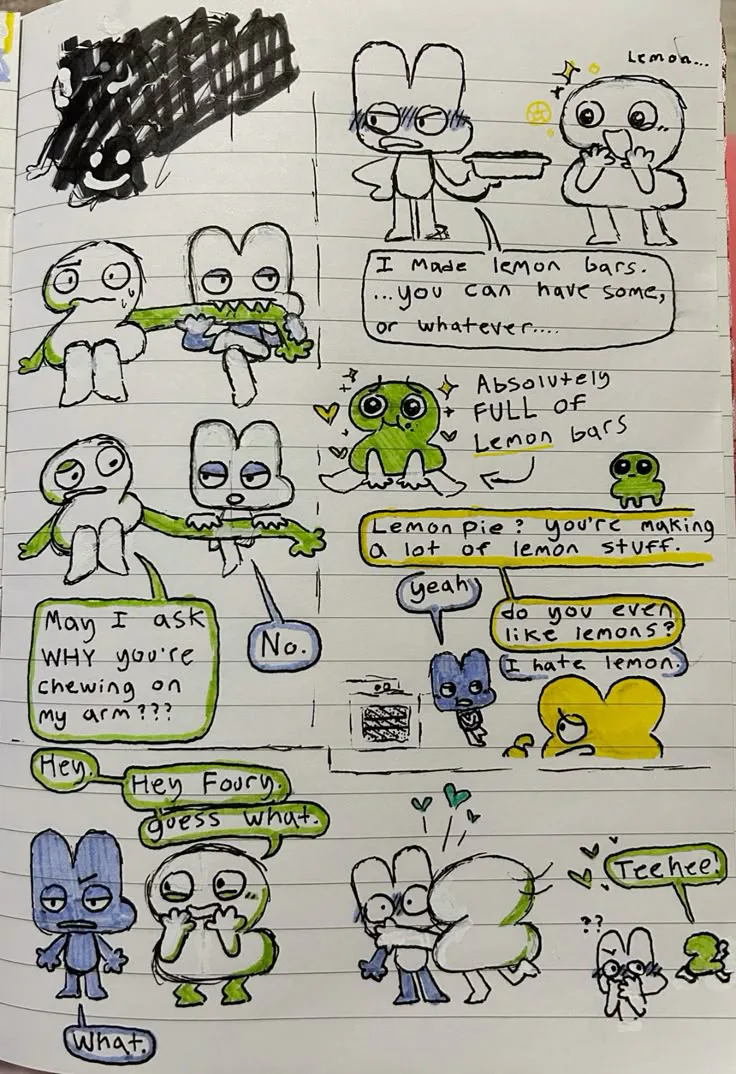 Lemon...
I made lemon bars.
...you can have some,
or whatever....
Absolutely
FULL OF
Lemon bars
May I ask
WHY you're
chewing on
my arm???
No.
Lemon pie? you're making
a lot of lemon stuff.
yeah
do you even
like lemons?
I hate lemon.
Hey.
Hey Foury.
guess what.
What.
??
Teehee!